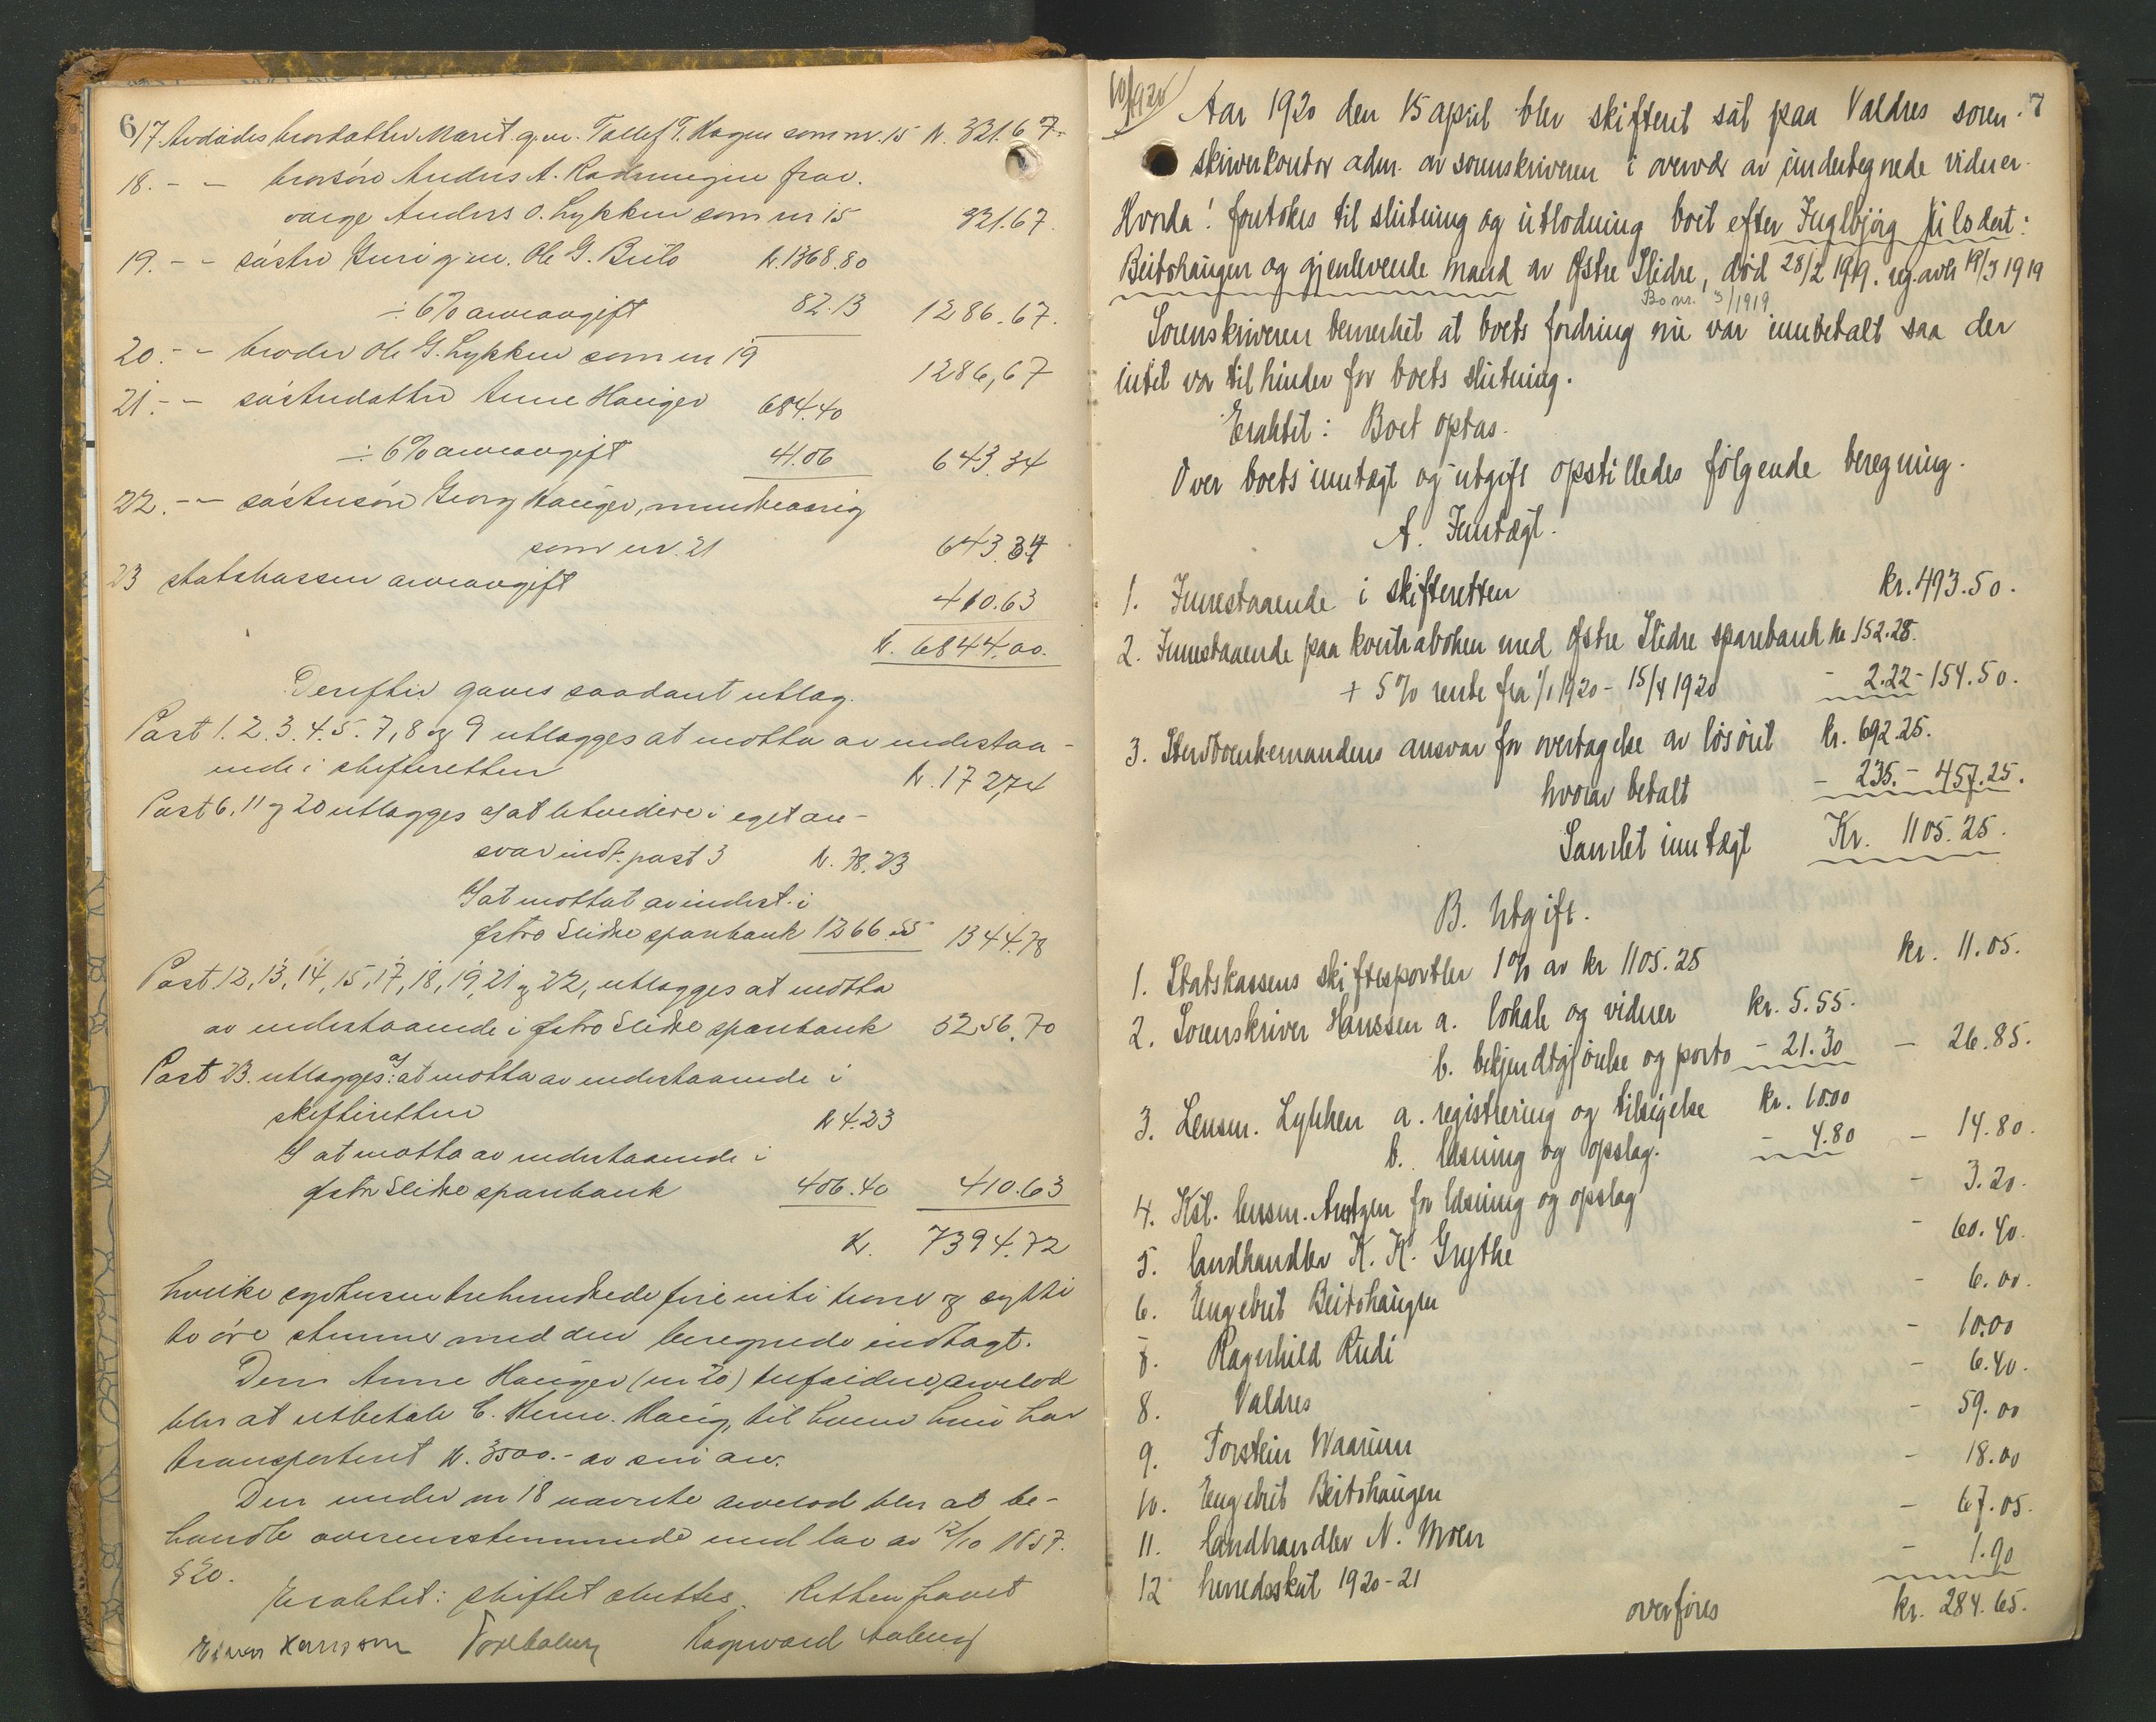 6
17. Avdødes brordatter Marit g.m. Tollef T. Hagen som nr. 15 kr. 321.67
18. - - brorsøn Andris A. Rødningen frav.
værge Anders O. Lykken som nr 15 321.67.
19. - - søster Guri g.m. Ole G. Beito kr. 1368.80
÷ 6% arveavgift 82.13 1286.67.
20. - - broder Ole G. Lykken som nr 19 1286,67
21. - - søsterdatter Anne Hauger 684.40
÷ 6% arveavgift 41.06 643.34
22. - - søstersøn Georg Hauger, mindreaarig
som nr. 21 643.34
23 statskassen arveavgift 410.63
kr. 6844.00.
Derefter gaves saadant utlæg.
Post 1. 2. 3. 4. 5. 7, 8 og 9 utlægges at motta av indestaa-
ende i skifteretten kr. 172,74
Post 6, 11 og 20 utlægges a) at likvidere i eget an-
svar indt. post 3 kr. 78.23
b) at mottat av indest. i
Østre Slidre sparebank 1266.55 1344.78
Post 12, 13, 14, 15, 17, 18, 19, 21 og 22, utlægges at motta
av indestaaende i Østre Slidre sparebank 5256,70
Post 23. utlægges: a) at motta av indestaaende i
skifteretten kr 4.23
b) at motta av indestaaende i
Østre Slidre sparebank 406.40 410.63
kr. 7394.72
hvilke syvtusen trehundrede fire niti kroner og sytti
to øre stemmer med den beregnede indtægt.
Den Anne Hauger (nr 20) tilfaldne arvelod
blir at utbetale C. Henr. Haug, til hvem hun har
transportert kr. 3500.- av sin arv.
Den under nr 18 nævnte arvelod blir at be-
handle overensstemmende med lov av 12/10 1857.
§ 20.
Eraktet: skiftet sluttes. Retten hævet
Einar Hanssen Ragnvald Aaberg
10/1920
7
Aar 1920 den 15 april blev skifteret sat paa Valdres soren-
skriverkontor adm. av sorenskriveren i overvær av undertegnede vidner.
Hvorda: foretokes til slutning og utlodning boet efter Inglbjørg Nilsdat:
Beitohaugen og gjenlevende mand av Østre Slidre, død 28/2 1919. reg. avh 19/3 1919
Bo nr. 5/1919
Sorenskriveren bemerket at boets fordring nu var innbetalt saa der
intet var til hinder for boets slutning.
Eraktet: Boet optas.
Over boets inntægt og utgift opstilledes følgende beregning.
A. Inntægt.
1. Innestaaende i skifteretten kr. 493.50.
2. Innestaaende paa kontraboken med Østre Slidre sparebank kr 152.28.
+ 5% rente fra 1/1 1920 - 15/4 1920 - 2.22 - 154.50.
3. Stervboenkemandens ansvar for overtagelse av løsøret kr. 692.25.
hvorav betalt - 235.- 457.25.
Samlet inntægt Kr. 1105.25.
B. Utgift.
1. Statskassens skiftesportler 1% av kr 1105.25 kr. 11.05.
2. Sorenskriver Hanssen a. lokale og vidner kr. 5.55.
b. bekjendtgjørelse og porto - 21.30 - 26.85.
3. Lensm. Lykken a. registrering og tilsigelse kr. 10.00
b. læsning og opslag. - 4.80 - 14.80.
4. Kst. lensm. Arntzen for læsning og opslag - 3.20.
5. landhandler K. K. Grythe - 60.40.
6. Engebret Beitohaugen - 6.00.
7. Ragnhild Rudi - 10.00
8. Valdres - 6.40.
9. Torstein Waarum - 59.00
10. Engebret Beitohaugen - 18.00
11. landhandler N. Moen - 67.05.
12 herredsskat 1920-21 - 1.90
overføres kr. 284.65.